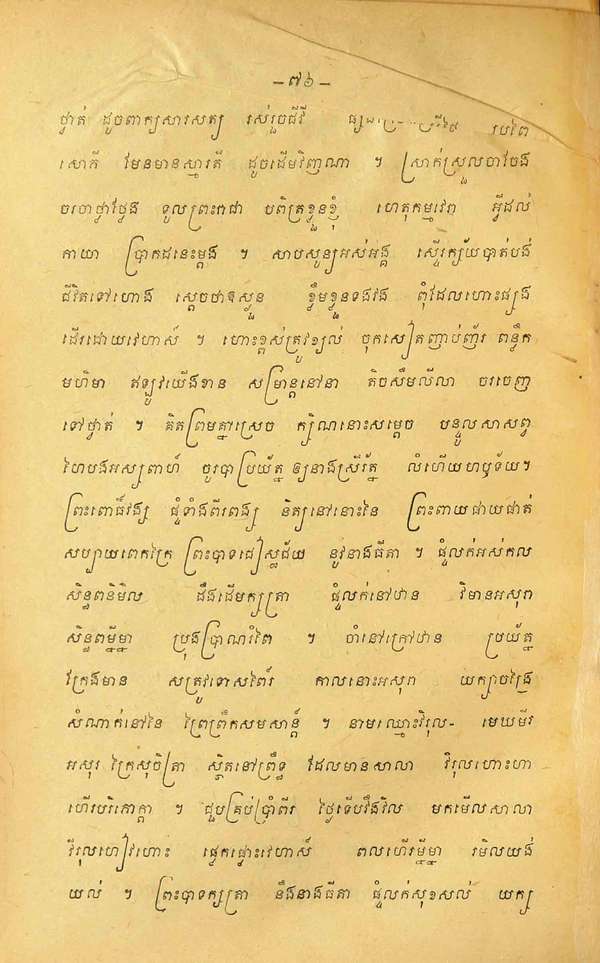 – ៧៦ –
ថ្ងាត់ ដូចពាក្យសារសត្យ រស់រួចជីវី
សោតី មែនមានស្មារតី ដូចដើមវិញណា ។ ស្រាក់ស្រួលចាចែង
ចរចាថ្លាថ្លែង ទូលព្រះរាជា បពិត្រខ្លួនខ្ញុំ ហេតុកម្មវេរា អ្វីដល់
កាយា ប្រាកដនេះម្តង ។ សាបសូន្យអស់អង្គ ស្ទើរក្ស័យបាត់បង់
ជីវិតទៅហោង ស្តេចថាឱស្ងួន ខ្លឹមខ្លួនទងវង ពុំដែលហោះផ្សង
ដើរដោយវេហាស៍ ។ ហោះខ្ពស់ត្រូវខ្យល់ ចុកសៀតញាប់ញ័រ ពន្លឹក
មហិមា ឥឡូវយើងខាន សម្រាន្តនៅនា តិចសឹមលីលា ចរចេញ
ទៅថ្ងាត់ ។ គិតព្រមគ្នាស្រេច ក្សិណនោះសម្តេច បន្ទូលសាសព្ទ
ហៃបងអស្សពាហ៍ ចូរបាប្រយ័ត្ន ឱ្យនាងស្រីរ័ត្ន លំហើយហឫទ័យ។
ព្រះពោធិ៍វង្ស ផ្ទំទាំងពីរពង្ស និត្យនៅនោះនៃ ព្រះពាយផាយផាត់
សប្បាយពេកក្រៃ ព្រះបាទជៀស្តជ័យ នូវនាងធីតា ។ ផ្ទំលក់អស់កល
សិន្ធពនិមិល ដឹងដើមក្សត្រា ផ្ទំលក់នៅឋាន វិមានអសុរា
សិន្ធពម្នីម្នា ប្រុងប្រាណរំពៃ ។ ចាំនៅក្រៅឋាន ប្រយ័ត្ន
ក្រែងមាន សត្រូវទោសពៃរ៍ កាលនោះអសុរា យក្សាចង្រៃ
សំណាក់នៅនៃ ព្រៃព្រឹកសមសាន្ត៍ ។ នាមឈ្មោះវិរុល- មេឃមីរ
អសុរ ក្រៃសុចិត្រា ស្ថិតនៅព្រឹទ្ធ ដែលមានសាលា វិរុលហោះហា
ហើរបរិភោក្តា ។ ជួបគ្រប់ប្រាំពីរ ថ្ងៃទើបវឹងវិល មកមើលសាលា
វិរុលហៀវហោះ ផ្លេកផ្លោះវេហាស៍ ពលហើរម្នីម្នា រមិលយង់
យល់ ។ ព្រះបាទក្សត្រា នឹងនាងធីតា ផ្ទំលក់សុខសល់ យក្ស